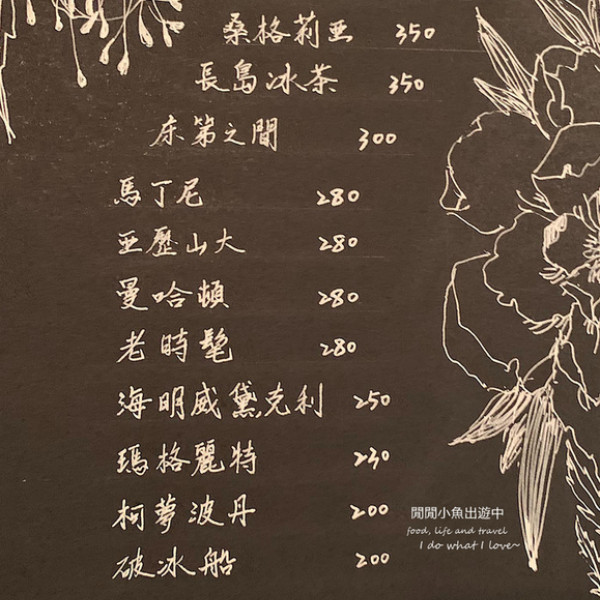 桑格莉亞 350
長島冰茶 350
床第之間 300
馬丁尼 280
亞歷山大 280
曼哈頓 280
老時髦 280
海明威黛克利 250
瑪格麗特 230
柯夢波丹 200
破冰船 200
閒閒小魚出遊中
food, life and travel
I do what I love~